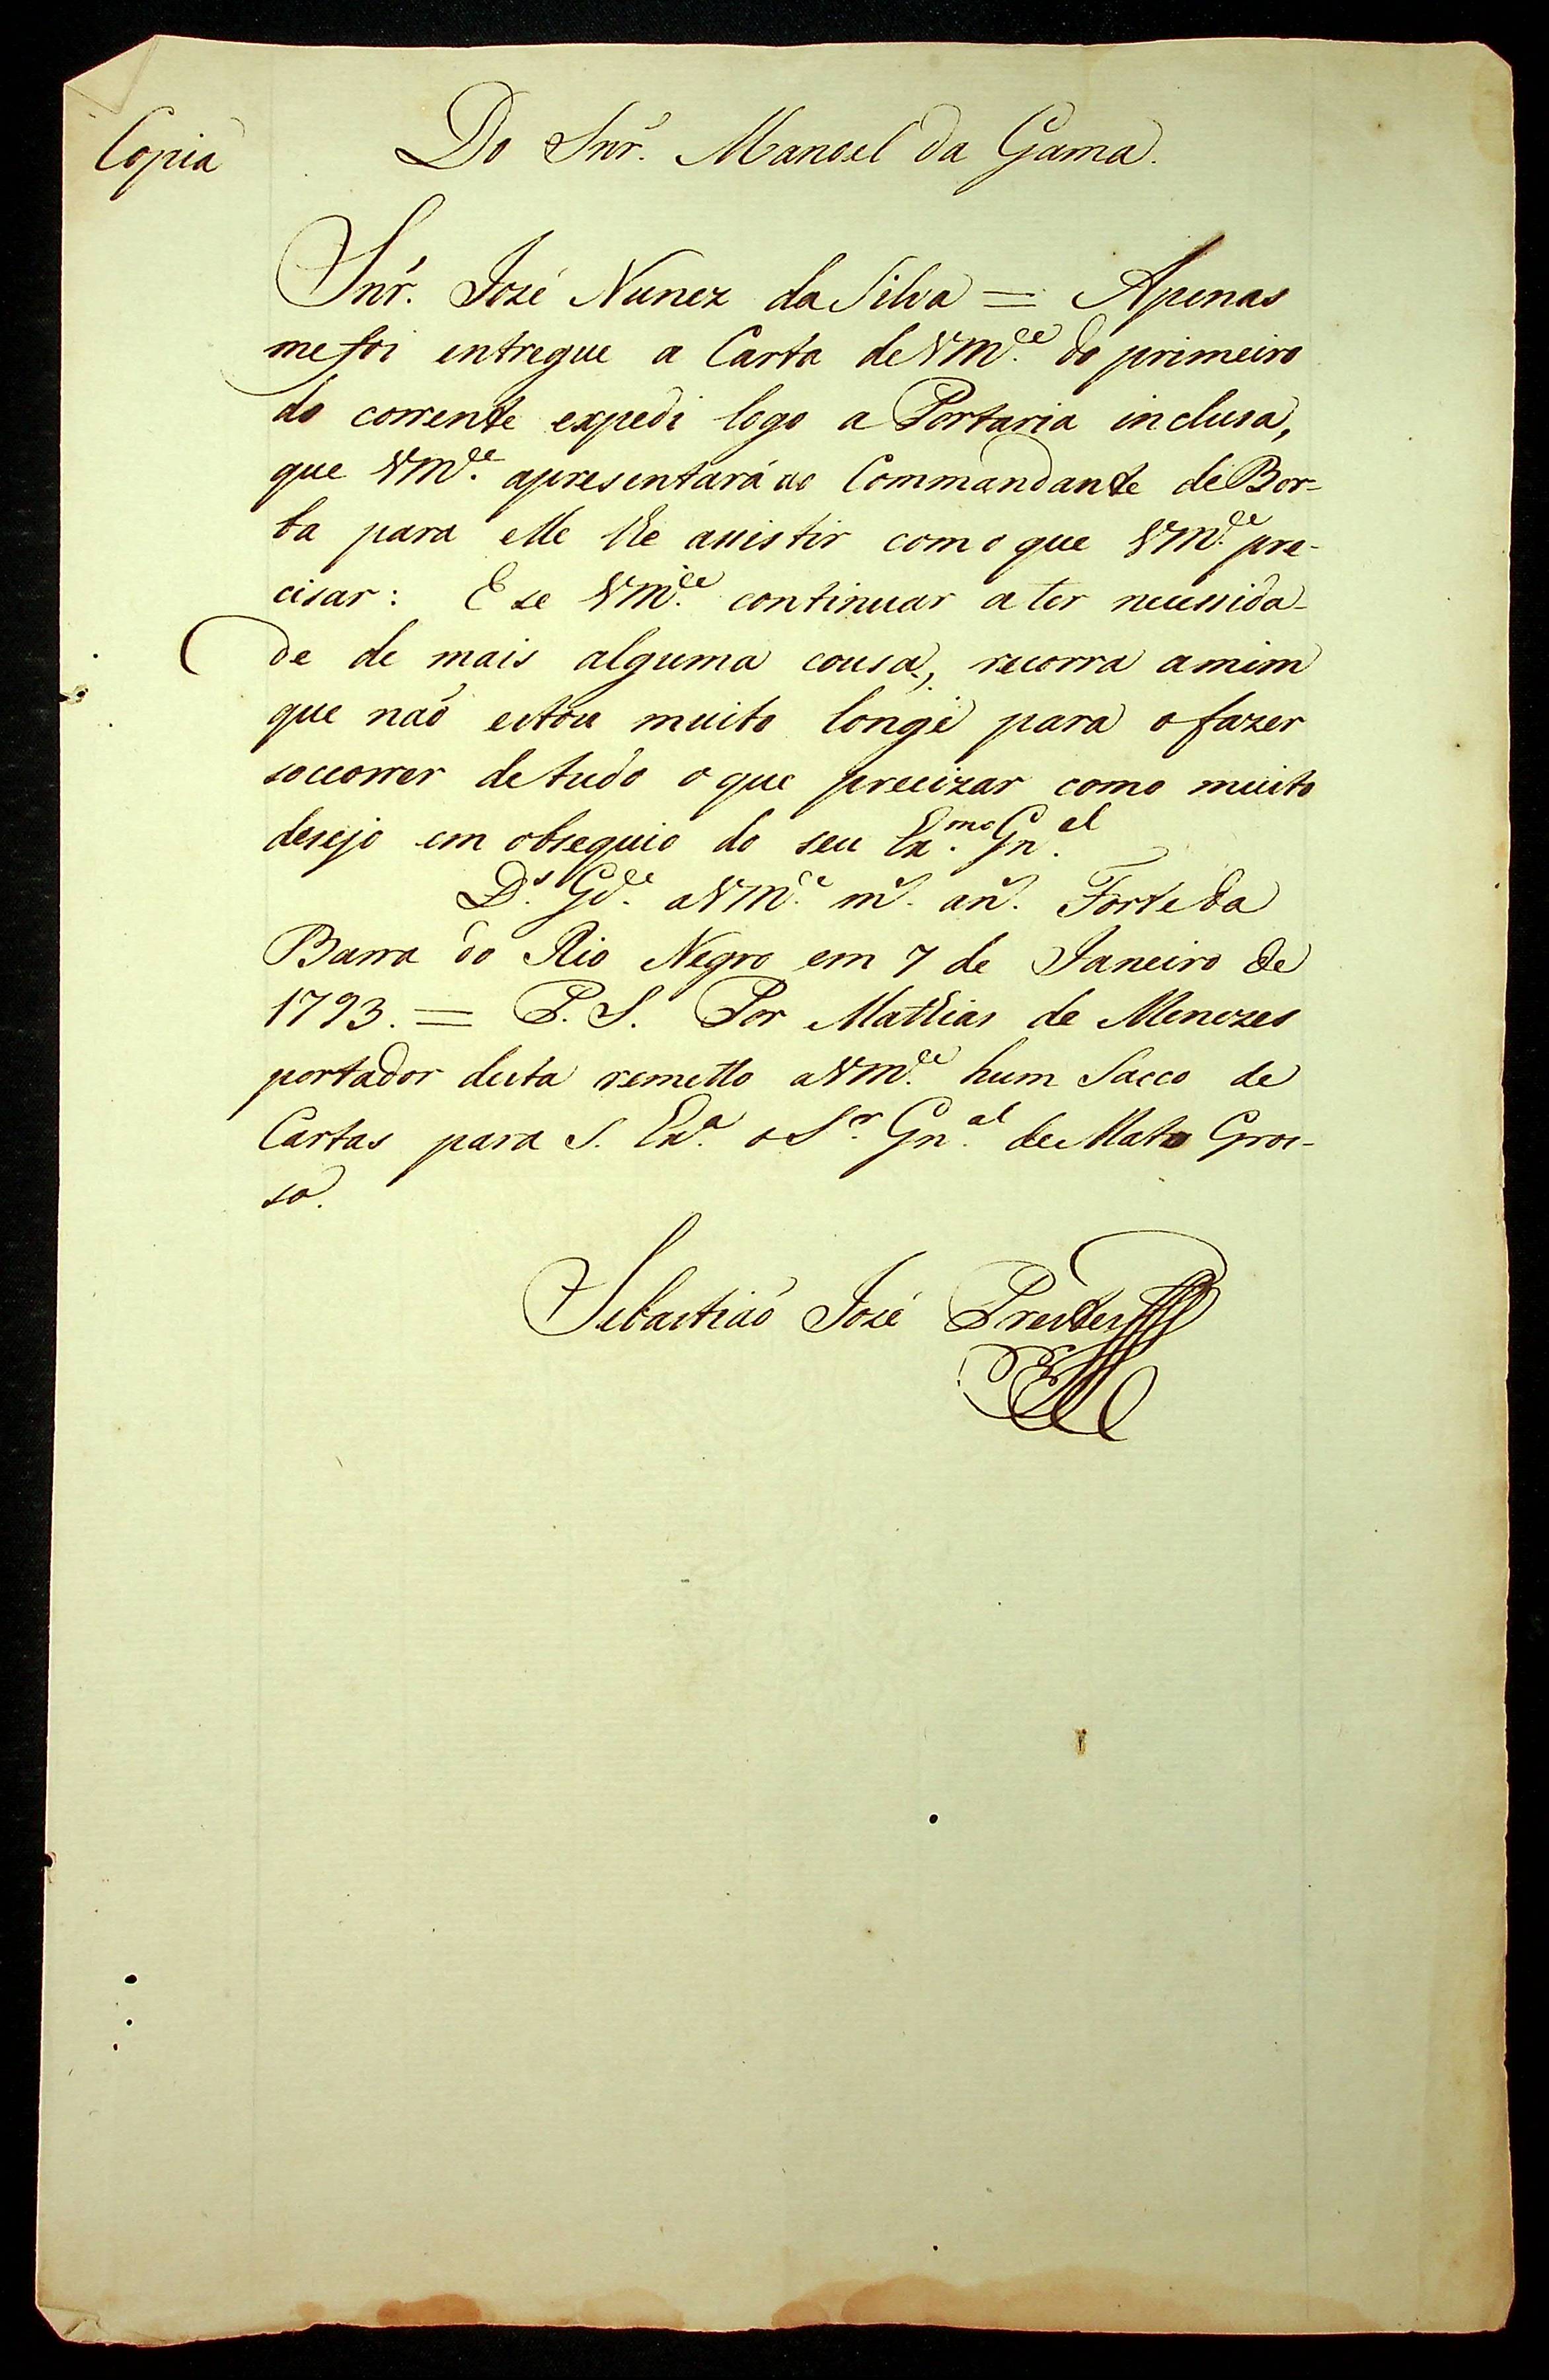 Copia
Do Snr. Manoel da Gama.
Snr. Jozé Nunez da Silva = Apenas
me foi entregue a Carta de VMce. do primeiro
do corrente expedi logo a Portaria inclusa,
que VMce. apresentará ao Commandante de Bor-
ba para elle lhe assistir com o que VMce. pre-
cisar: E se VMce. continuar a ter necessida-
de de mais alguma cousa, recorra a mim
que naõ estou muito longe para o fazer
soccorrer de tudo o que precizar como muito
desejo em obsequio do seu Exmo. Gnel.
Ds. Gde. a VMce. ms. ans. Forte da
Barra do Rio Negro em 7 de Janeiro de
1793. = P. S. Por Mathias de Menezes
portador desta remetto a VMce. hum Sacco de
Cartas para S. Exa. o Sr. Gnal. de Mato Gros-
so.
Sebastiaõ José Prestes